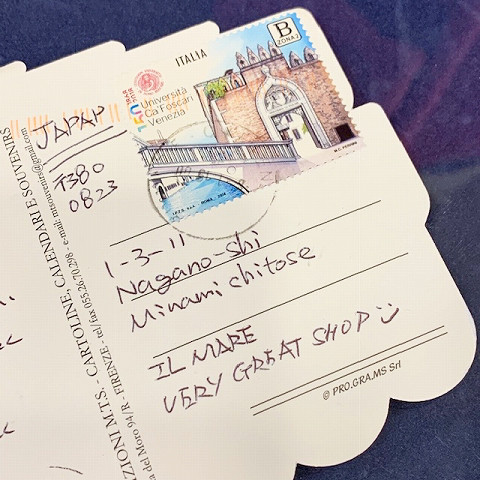 ITALIA
B
ZONA 2
150
1868
2018
Università
Ca' Foscari
Venezia
JAPAP
〒380
0823
1-3-11
Nagano-shi
Minami chitose
IL MARE
VERY GREAT SHOP
© PRO.GRA.MS Srl
AZIONI M.T.S. - CARTOLINE, CALENDARI E SOUVENIRS
a del Moro 94/R - FIRENZE - tel/fax 055.26.70.298 - e-mail: mtssouvenir@gmail.com